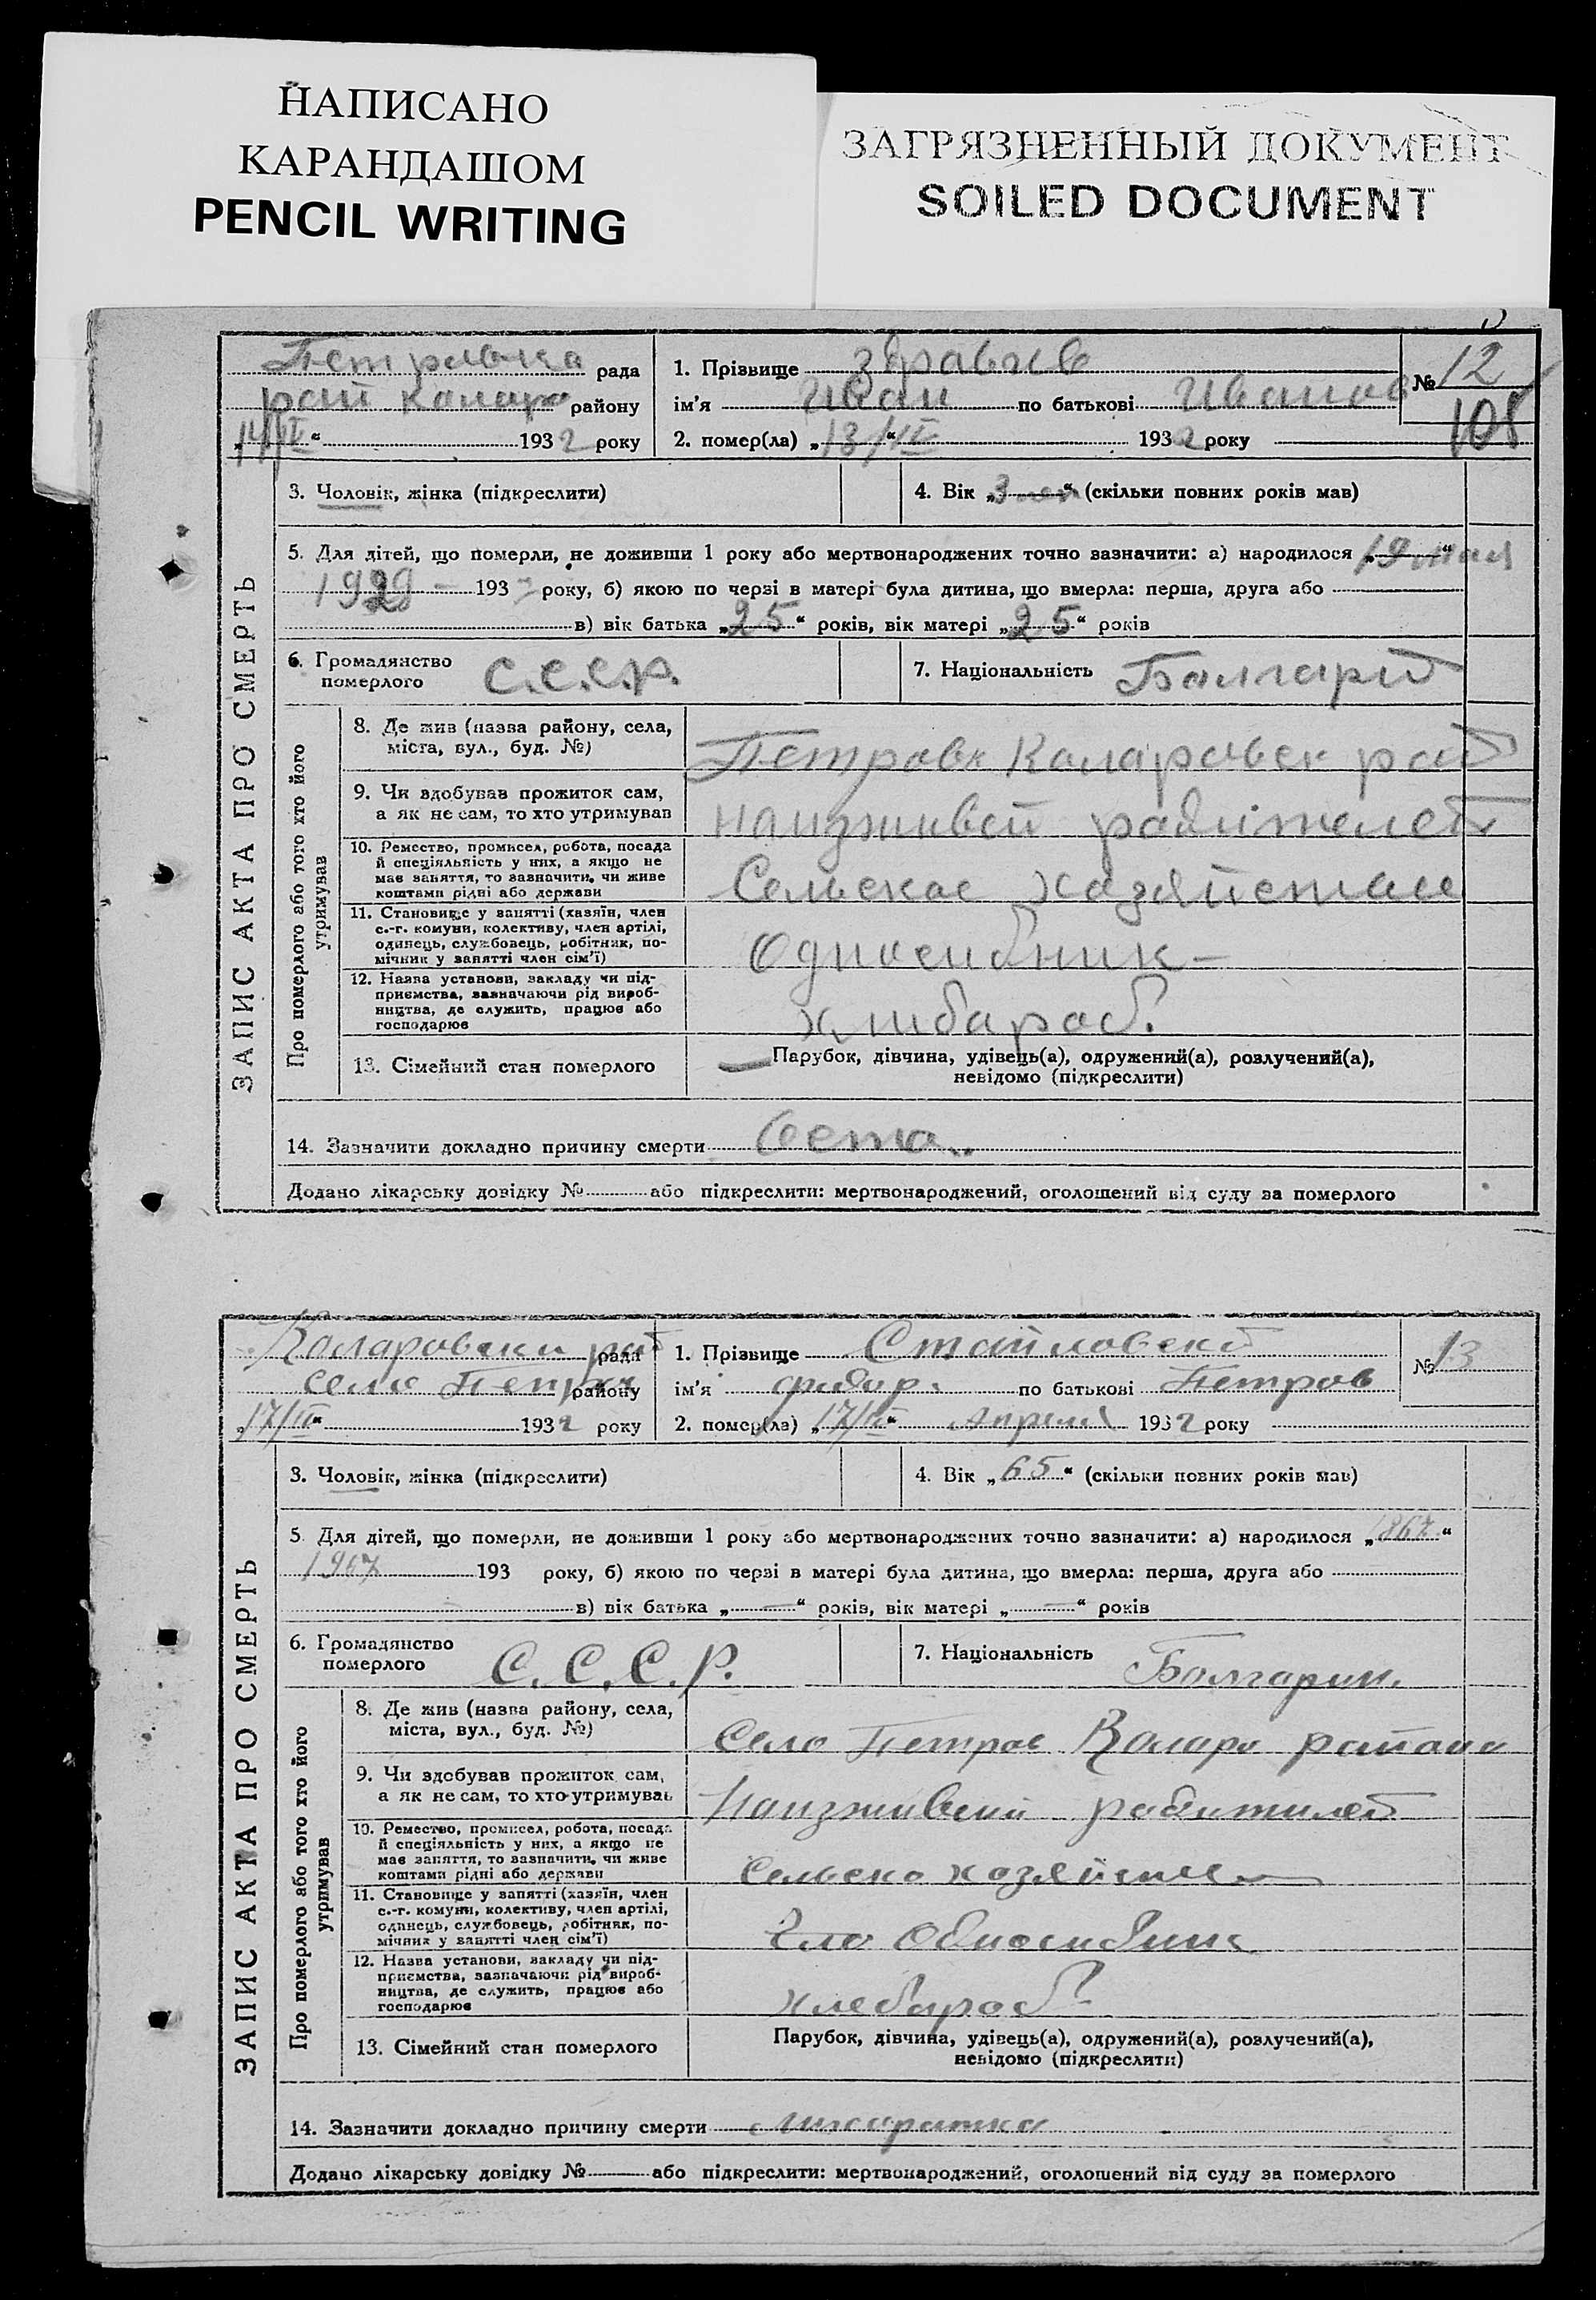 НАПИСАНО
КАРАНДАШОМ
PENCIL WRITING
ЗАГРЯЗНЕННЫЙ ДОКУМЕНТ
SOILED DOCUMENT
ЗАПИС АКТА ПРО СМЕРТЬ
рада
рай района
„14/IV“ 1932 року
1. Прізвище Здравчев
ім'я Иван по батькові Иванов
2. помер(ла) „13/IV“ 1932 року
№ 12
108
3. Чоловік, жінка (підкреслити)
4. Вік „3 лет“ (скільки повних років мав)
5. Для дітей, що померли, не доживши 1 року або мертвонароджених точно зазначити: а) народилося „19 мая“
1929 193 року, б) якою по черзі в матері була дитина, що вмерла: перша, друга або
в) вік батька „25“ років, вік матері „25“ років
6. Громадянство померлого С.С.С.Р.
7. Національність Болгарин
Про померлого або того хто його утримував
8. Де жив (назва району, села,
міста, вул., буд. №)
Петровк Коларовск рай
9. Чи здобував прожиток сам,
а як не сам, то хто утримував
10. Ремество, промисел, робота, посада
й спеціяльність у них, а якщо не
має заняття, то зазначити, чи живе
коштами рідні або держави
Сельское
11. Становище у занятті (хазяїн, член
с.-г. комуни, колективу, член артілі,
одинець, службовець, робітник, по-
мічник у занятті член сім'ї)
12. Назва установи, закладу чи під-
приємства, зазначаючи рід вироб-
ництва, де служить, працює або
господарює
13. Сімейний стан померлого
Парубок, дівчина, удівець(а), одружений(а), розлучений(а),
невідомо (підкреслити)
14. Зазначити докладно причину смерти
Додано лікарську довідку № або підкреслити: мертвонароджений, оголошений від суду за померлого
ЗАПИС АКТА ПРО СМЕРТЬ
Коларовски рай рада
село Петров району
„17/IV“ 1932 року
1. Прізвище
ім'я фидор. по батькові Петров
2. помер(ла) „17/IV“ Апреля 1932 року
№ 13
3. Чоловік, жінка (підкреслити)
4. Вік „65“ (скільки повних років мав)
5. Для дітей, що померли, не доживши 1 року або мертвонароджених точно зазначити: а) народилося „1867“
1967 193 року, б) якою по черзі в матері була дитина, що вмерла: перша, друга або
в) вік батька „—“ років, вік матері „—“ років
6. Громадянство померлого С.С.С.Р.
7. Національність Болгарин.
Про померлого або того хто його утримував
8. Де жив (назва району, села,
міста, вул., буд. №)
Село Петров Колар района
9. Чи здобував прожиток сам,
а як не сам, то хто утримував
10. Ремество, промисел, робота, посада
й спеціяльність у них, а якщо не
має заняття, то зазначити, чи живе
коштами рідні або держави
Сельско
11. Становище у занятті (хазяїн, член
с.-г. комуни, колективу, член артілі,
одинець, службовець, робітник, по-
мічник у занятті член сім'ї)
12. Назва установи, закладу чи під-
приємства, зазначаючи рід вироб-
ництва, де служить, працює або
господарює
хлебароб
13. Сімейний стан померлого
Парубок, дівчина, удівець(а), одружений(а), розлучений(а),
невідомо (підкреслити)
14. Зазначити докладно причину смерти
Додано лікарську довідку № або підкреслити: мертвонароджений, оголошений від суду за померлого